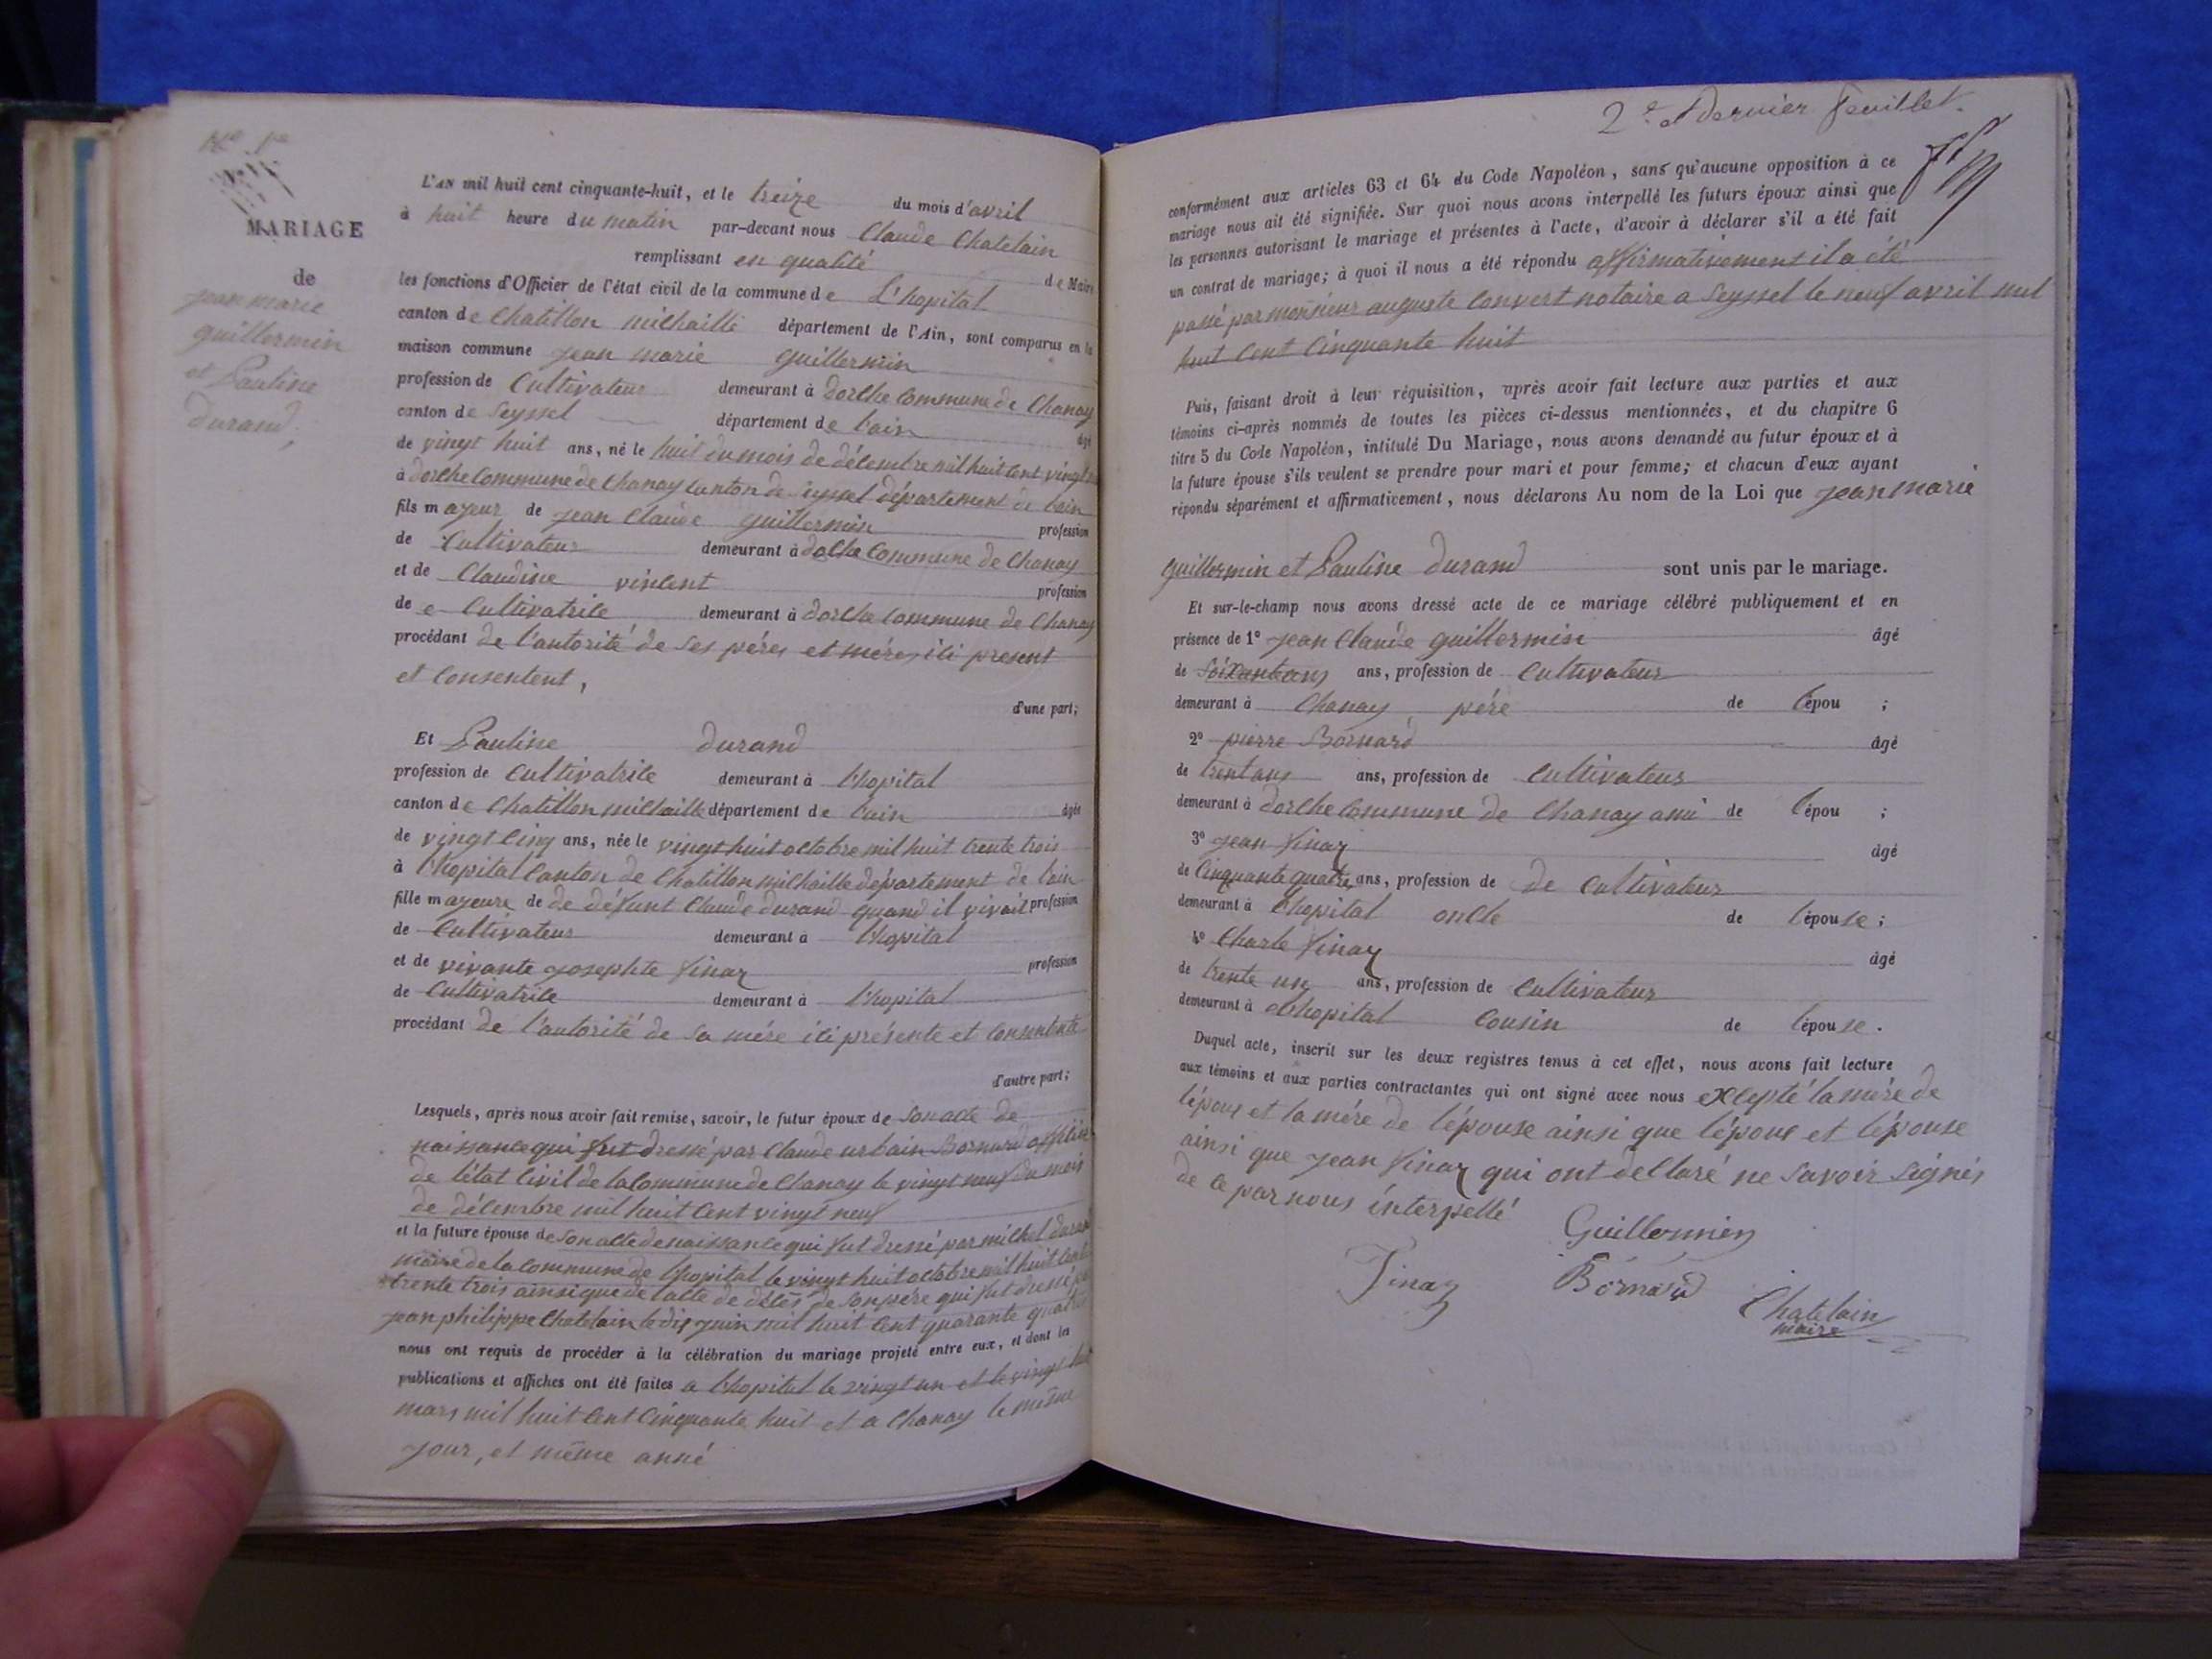 MARIAGE
de
jean marie
guillermin
et Pauline
durand,
L'AN mil huit cent cinquante-huit, et le treize du mois d'avril
à huit heure du matin par-devant nous Claude Chatelain
remplissant en qualité de Maire
les fonctions d'Officier de l'état civil de la commune de L'hopital
canton de Chatillon michaille département de l'Ain, sont comparus en la
maison commune jean marie guillermin
profession de Cultivateur demeurant à dorche Commune de Chanay
canton de Seyssel département de l'ain âgé
de vingt huit ans, né le huit du mois de décembre mil huit cent vingt
à dorche Commune de Chanay Canton de Seyssel département de l'ain
fils mayeur de jean Claude guillermin profession
de Cultivateur demeurant à dolche Commune de Chanay
et de Claudine vincent profession
de e Cultivatrice demeurant à dorche Commune de Chanay
procédant de l'autorité de ses péres et méres ici present
et Consentent,
d'une part;
Et Pauline durand
profession de Cultivatrice demeurant à l'hopital
canton de Chatillon michaille département de l'ain âgée
de vingt Cinq ans, née le vingt huit octobre mil huit trente trois
à l'hopital Canton de Chatillon michaille département de l'ain
fille mayeure de de défunt Claude durand quand il vivait profession
de Cultivateur demeurant à l'hopital
et de vivante josephte finaz profession
de Cultivatrice demeurant à l'hopital
procédant de l'autorité de sa mére ici présente et Consentente
d'autre part;
Lesquels, après nous avoir fait remise, savoir, le futur époux de son acte de
naissance qui fut dressé par Claude urbain Bornard officier
de l'état Civil de la Commune de Chanay le vingt neuf du mois
de décembre mil huit Cent vingt neuf
et la future épouse de son acte de naissance qui fut dressé par michel durand
maire de la Commune de l'hopital le vingt huit octobre mil huit Cent
trente trois ainsi que de l'acte de décés de son pére qui fut dressé par
jean philippe Chatelain le dix juin mil huit Cent quarante quatre
nous ont requis de procéder à la célébration du mariage projeté entre eux, et dont les
publications et affiches ont été faites a l'hopital le vingt un et le vingt huit
mars mil huit Cent Cinquante huit et a Chanay le même
jour, et même anné
2e et dernier feuillet.
conformément aux articles 63 et 64 du Code Napoléon, sans qu'aucune opposition à ce
mariage nous ait été signifiée. Sur quoi nous avons interpellé les futurs époux ainsi que
les personnes autorisant le mariage et présentes à l'acte, d'avoir à déclarer s'il a été fait
un contrat de mariage; à quoi il nous a été répondu affirmativement il a été
passé par monsieur auguste Convert notaire a Seyssel le neuf avril mil
huit Cent Cinquante huit
Puis, faisant droit à leur réquisition, après avoir fait lecture aux parties et aux
témoins ci-après nommés de toutes les pièces ci-dessus mentionnées, et du chapitre 6
titre 5 du Code Napoléon, intitulé Du Mariage, nous avons demandé au futur époux et à
la future épouse s'ils veulent se prendre pour mari et pour femme; et chacun d'eux ayant
répondu séparément et affirmativement, nous déclarons Au nom de la Loi que jean marie
guillermin et Pauline durand sont unis par le mariage.
Et sur-le-champ nous avons dressé acte de ce mariage célébré publiquement et en
présence de 1° jean Claude guillermin âgé
de Soixantans ans, profession de Cultivateur
demeurant à Chanay pére de l'épou ;
2° pierre Bornard âgé
de trentans ans, profession de Cultivateur
demeurant à dorche Commune de Chanay ami de l'épou ;
3° jean finaz âgé
de Cinquante quatre ans, profession de de Cultivateur
demeurant à l'hopital oncle de l'épouse ;
4° Charle finaz âgé
de trente un ans, profession de Cultivateur
demeurant à a l'hopital Cousin de l'épouse .
Duquel acte, inscrit sur les deux registres tenus à cet effet, nous avons fait lecture
aux témoins et aux parties contractantes qui ont signé avec nous excepté la mére de
l'époux et la mére de l'épouse ainsi que l'époux et l'épouse
ainsi que jean finaz qui ont declaré ne savoir signés
de ce par nous interpellé
Guillermin
Finaz Bornard
Chatelain
maire